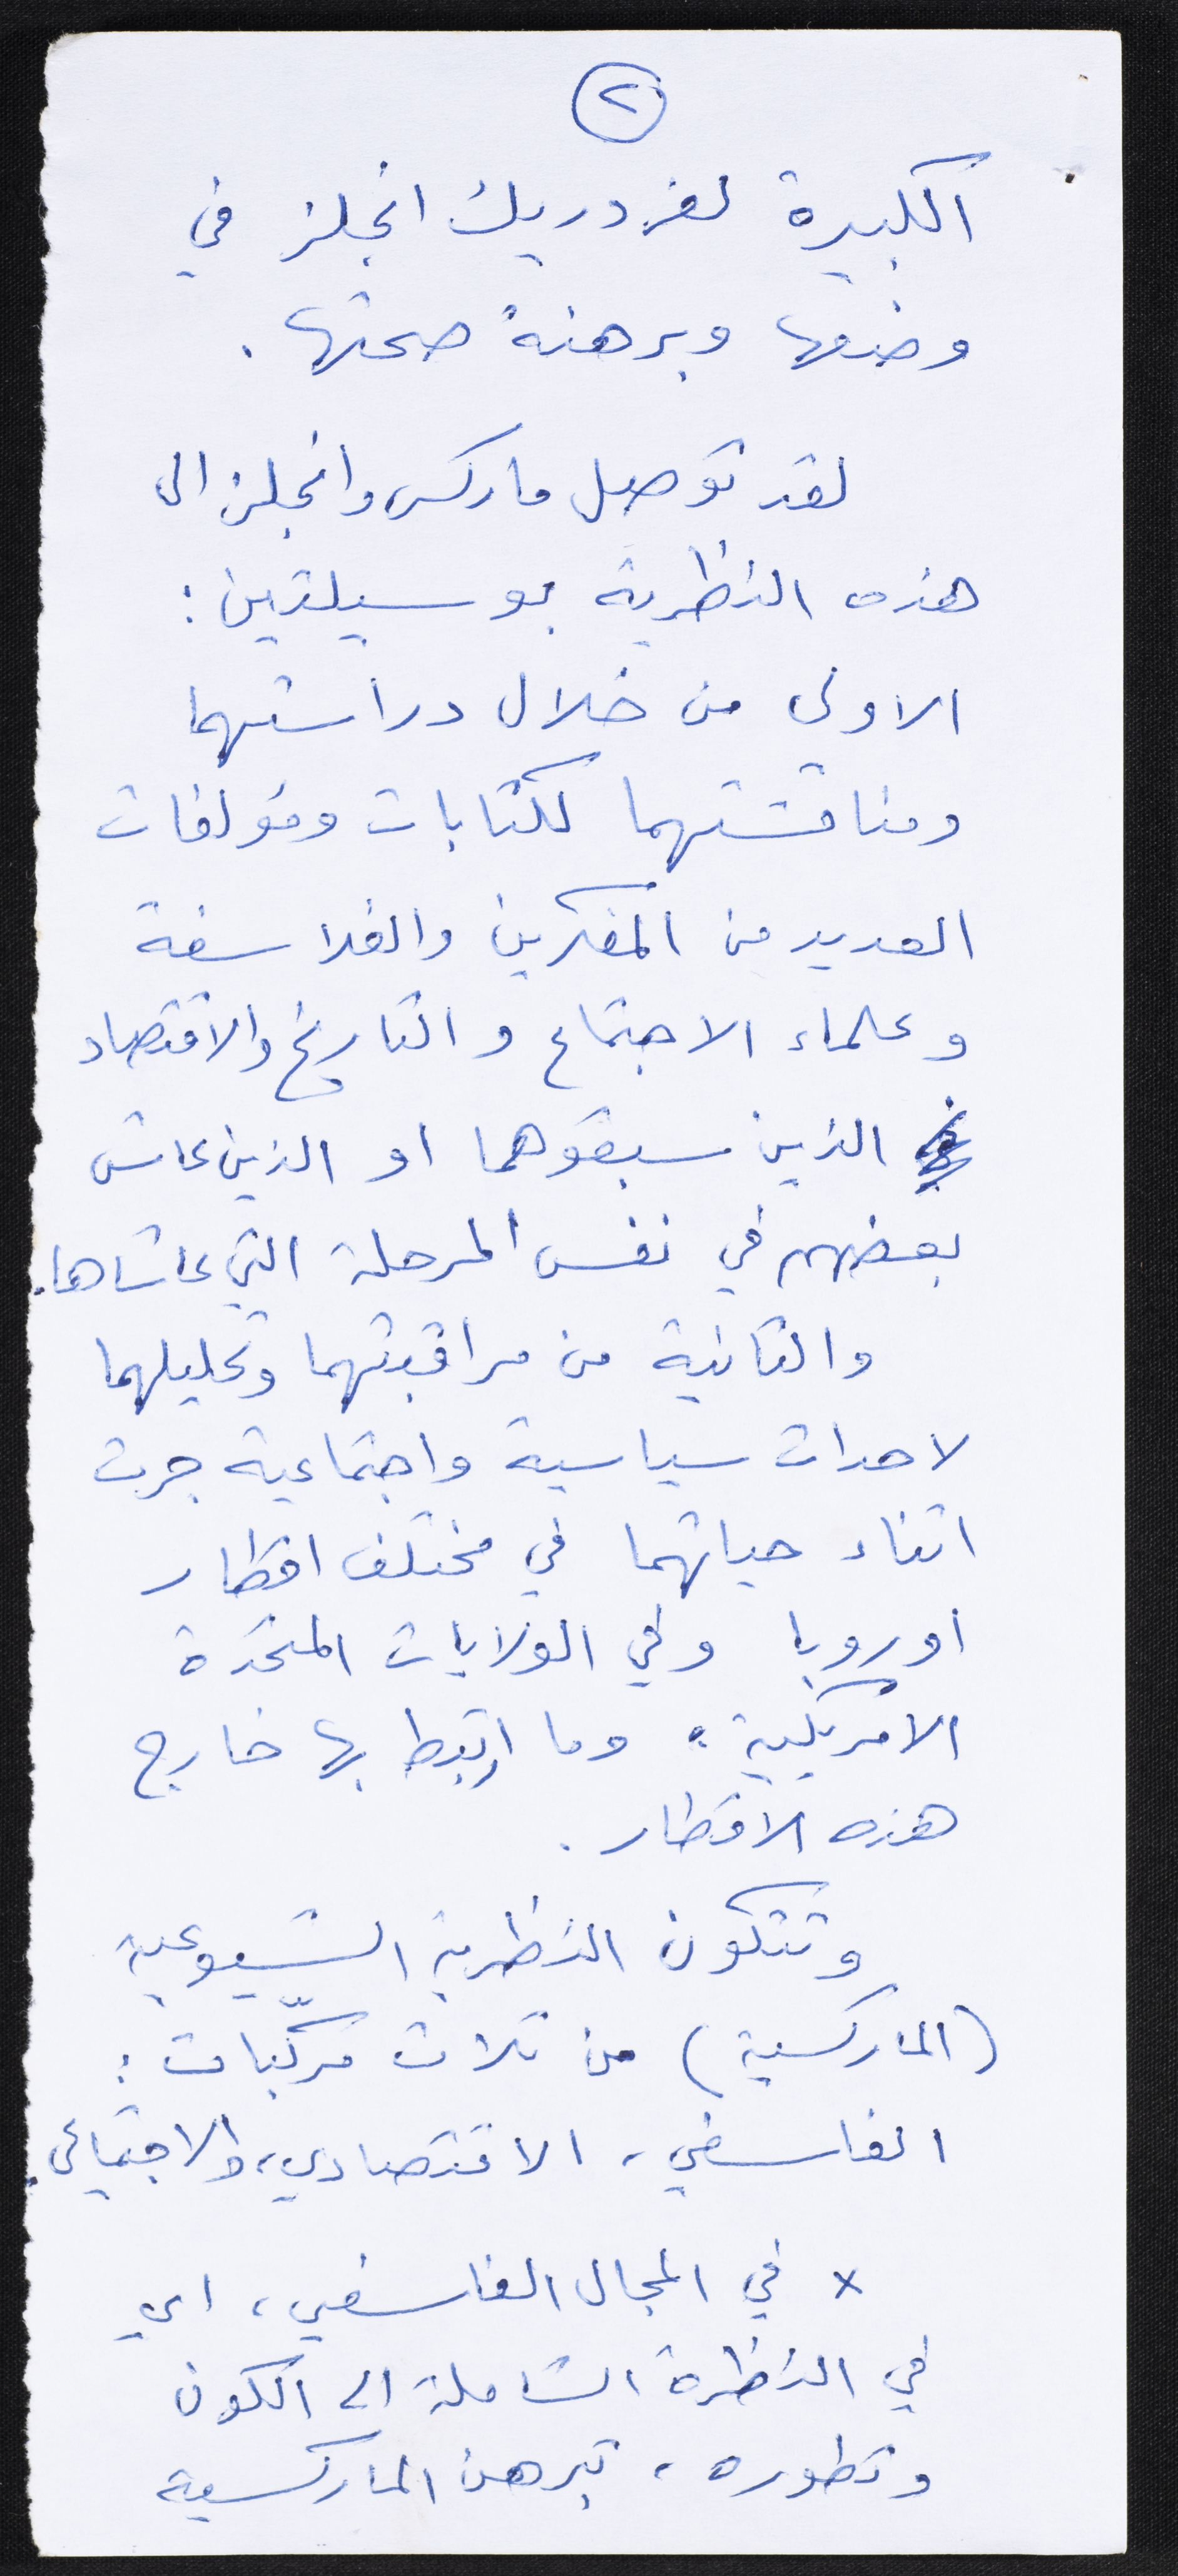 ٢
الكبيرة لفردريك انجلز في
وضعها وبرهنة صحتها .
لقد توصل ماركس وانجلز الى
هذه النظرية بوسيلتين :
الاولى من خلال دراستهما
ومناقشتهما لكتابات ومؤلفات
العديد من المفكرين والفلاسفة
وعلماء الاجتماع والتاريخ والاقتصاد
الذين سبقوهما او الذين عاش
بعضهم في نفس المرحلة التي عاشاها.
والثانية من مراقبتهما وتحليلهما
لاحداث سياسية واجتماعية جرت
اثناء حياتهما في مختلف اقطار
اوروبا وفي الولايات المتحدة
الامريكية . وما ارتبط بها خارج
هذه الاقطار .
وتتكون النظرية الشيوعية
(الماركسية) من ثلاث مركّبات :
الفلسفي ، الاقتصادي ، والاجتماعي .
× في المجال الفلسفي ، اي
في النظرة الشاملة الى الكون
وتطوره ، تبرهن الماركسية